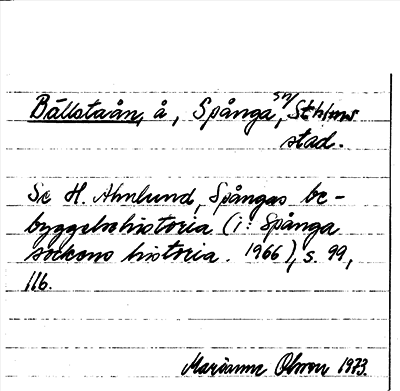 Bällstaån, å, Spånga sn, Sthlms
stad.
Se H. Ahnlund, Spångas be-
byggelsehistoria (i: Spånga
sockens historia. 1966), s. 99,
116.
Marianne Olsson 1973.